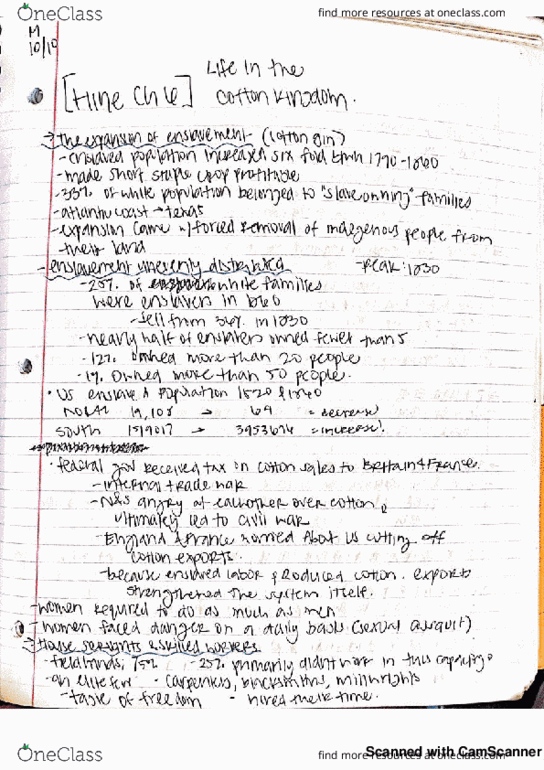 OneClass
find more resources at oneclass.com
M
10/10
Life in the
[Hine Ch 6] Cotton Kingdom.
→ The expansion of enslavement (cotton gin)
- enslaved population increased six fold btwn 1790-1860
- made short staple crop profitable
- 35% of white population belonged to "slave owning" families
- atlantic coast → texas
- expansion came w/ forced removal of indigenous people from
their land
- enslavement unevenly distributed -peak: 1830
- 25% of white families
were enslavers in 1860
- fell from 36% in 1830
- nearly half of enslavers owned fewer than 5
- 12% owned more than 20 people
- 1% owned more than 50 people.
• US enslaved population 1820 & 1860
North 19,108 → 64 = decrease!
South 1519017 → 3953696 = increase!
• federal gov received tax on cotton sales to Britain & France.
- internal trade war
- N&S angry at eachother over cotton,
ultimately led to civil war
- England & France worried about US cutting off
cotton exports.
- because enslaved labor produced cotton. exports
strengthened the system itself.
- women required to do as much as men
- women faced danger on a daily basis (sexual assault)
→ House servants & skilled workers
- fieldhands, 75% - 25% primarily didn't work in this capacity
- an elite few - carpenters, blacksmiths, millwrights
- taste of freedom - hired their time.
OneClass
find more resources at oneclass.com
Scanned with CamScanner